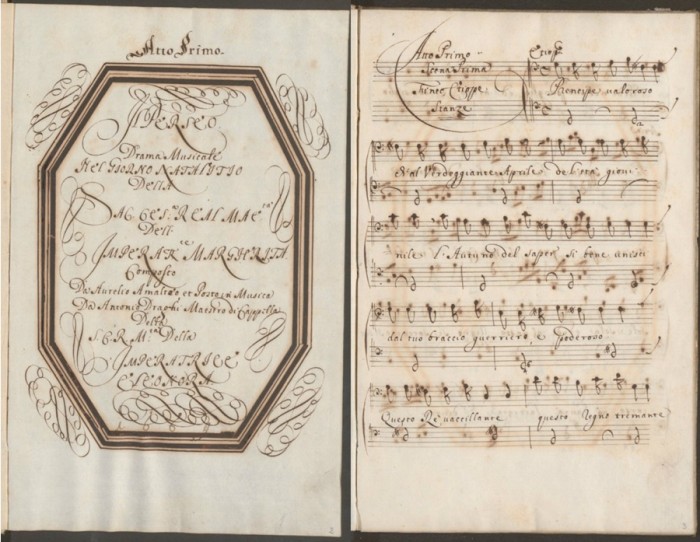 Atto Primo.
Il Perseo
Drama Musicale
Nel GIORNO NATALITIO
Della
SAC. CES. REAL MAE.TA
Dell'
IMPERAT.CE MARGHERITA
Composto
Da Aurelio Amalteo et Posto in Musica
Da Antonio Draghi Maestro di Cappella
Della
S. C. R. M.TA Della
IMPERATRICE
ELEONORA
Atto Primo
Scena Prima
Stanze
Principe valoroso
Nel Verdeggiante Aprile de l'età giovi
nile L'Autuno del saper si bene unisti
dal tuo braccio guerriero e poderoso
Questo Re vaccillante questo Regno tremante